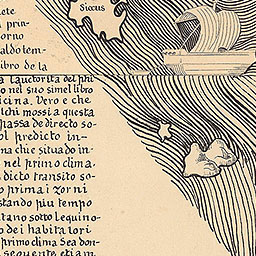 Siccus
ete
a prin
orno
aldo tem-
libro de la
a lauctorita del phi
o nel suo simel libro
icina. Vero e che
lchi mossi a questa
passa de directo so-
ol predicto in-
na che situado in-
nel primo clima.
dicto transito so-
o prima i zorni
stando piu tempo
itano sotto lequino-
o dei habitatori
primo clima Sea don-
sequente etiam